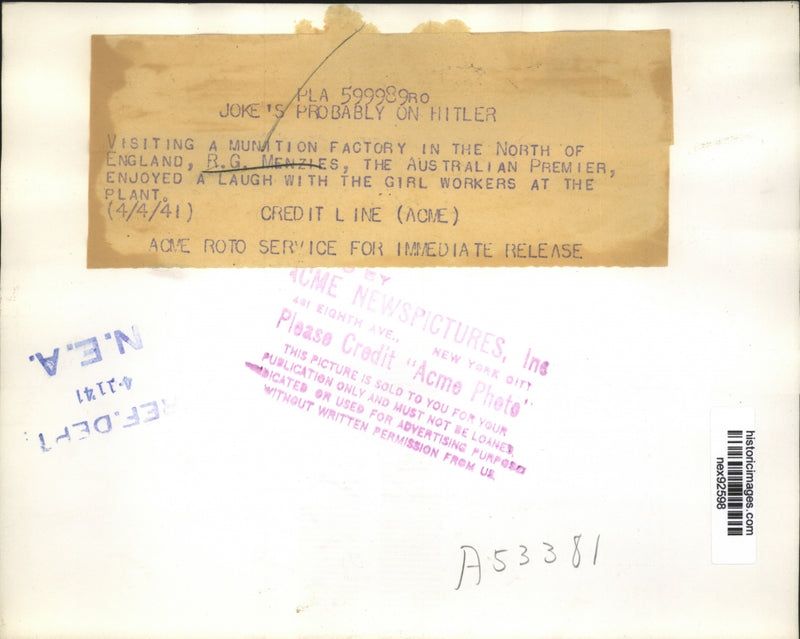 PLA 599989RO
JOKE'S PROBABLY ON HITLER
VISITING A MUNITION FACTORY IN THE NORTH OF
ENGLAND, R.G. MENZIES, THE AUSTRALIAN PREMIER,
ENJOYED A LAUGH WITH THE GIRL WORKERS AT THE
PLANT.
(4/4/41) CREDIT LINE (ACME)
ACME ROTO SERVICE FOR IMMEDIATE RELEASE
BY
ACME NEWSPICTURES, Inc
461 EIGHTH AVE., NEW YORK CITY
Please Credit "Acme Photo"
THIS PICTURE IS SOLD TO YOU FOR YOUR
PUBLICATION ONLY AND MUST NOT BE LOANED,
DICATED OR USED FOR ADVERTISING PURPOSES
WITHOUT WRITTEN PERMISSION FROM US.
REF. DEPT
4-11'41
N.E.A.
historicimages.com
nex92598
A53381